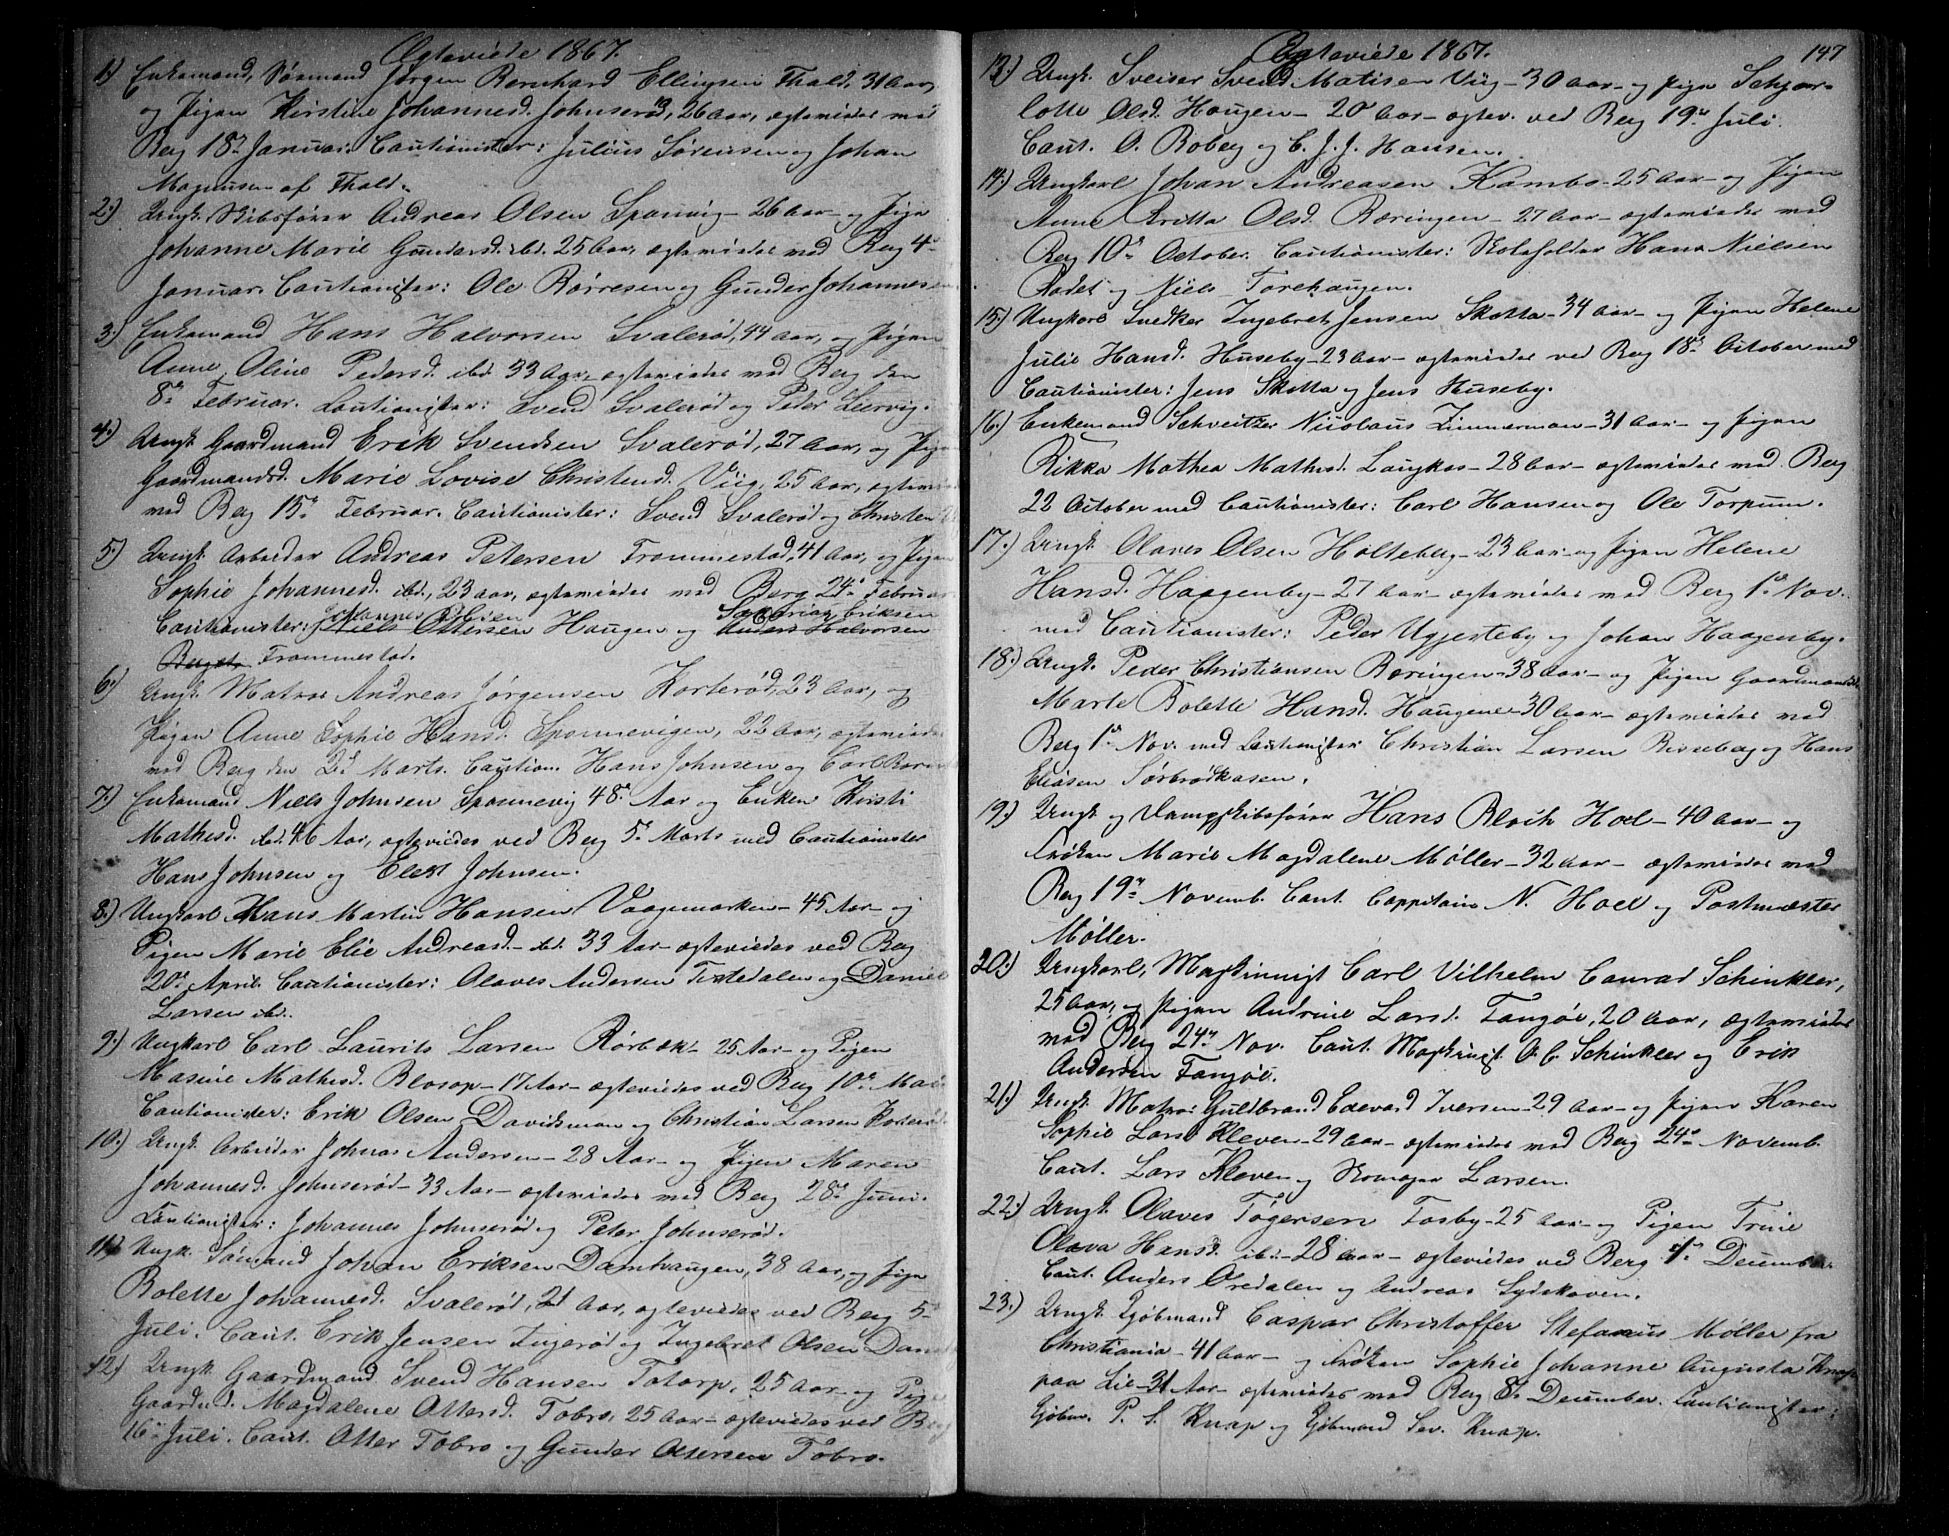 Ægteviede 1867.
1.) Enkemand, Sømand Jørgen Bernhard Ellingsen Thald, 31 Aar,
og Pigen Kirstine Johannesd. Johnserød, 26 Aar, ægteviedes ved
Berg 18de Januar. Cautionister: Julius Sørensen og Johan
Magnusen af Thald.
2.) Ungk. Skibsfører Andreas Olsen Sponvig - 26 Aar - og Pige
Johanne Marie Gundersd. ibd. 25 Aar, ægteviedes ved Berg 4de
Januar. Cautionister: Ole Børresen og Gunder Johannesen
3.) Enkemand Hans Halvorsen Svalerød, 44 Aar, og Pigen
Anne Oline Pedersd. ibd. 33 Aar, ægteviedes ved Berg den
8de Februar. Cautionister: Svend Svalerød og Peder Leervig.
4.) Ungk. Gaardmand Erik Svendsen Svalerød, 27 Aar, og Pigen
Gaardmandsd. Marie Lovise Christensd. Viig, 25 Aar, ægtevied
ved Berg 15de Februar. Cautionister: Svend Svalerød og Christen
5.) Ungk. Arbeider Andreas Petersen Trommestad, 41 Aar, og Pigen
Sophie Johannesd. ibd., 23 Aar, ægteviedes ved Berg 24de Februar
Cautionister: Johannes Olsen Niels Ottersen Haugen og Zakarias Eriksen Anders Halvorsen
Berget Trommestad.
6.) Ungk. Matros Andreas Jørgensen Korterød, 23 Aar, og
Pigen Anne Sophie Hansd. Sponnevigen, 22 Aar, ægteviedes
ved Berg den 2d Marts. Caution. Hans Johnsen og Carl
7.) Enkemand Niels Johnsen Sponnevig 48 Aar og Enken Kristi
Mathisd. ibd. 46 Aar, ægteviedes ved Berg 5te Marts med Cautionister
Hans Johnsen og Elek Johnsen.
8.) Ungkarl Hans Martin Hansen Vaagemarken - 45 Aar - og
Pigen Marie Elie Andreasd. - ibd. 33 Aar - ægteviedes ved Berg
20de April. Cautionister: Olaves Andersen Tistedalen og Daniel
Larsen ibd.
9.) Ungkarl Carl Laurits Larsen Rørbæk - 25 Aar - og Pigen
Masine Mathisd. Blosop - 17 Aar - ægteviedes ved Berg 10de Mai
Cautionister: Erik Olsen Davidsman og Christian Larsen
10.) Ungk. Arbeider Johnas Andersen - 28 Aar - og Pigen Maren
Johannesd. Johnserød - 33 Aar - ægteviedes ved Berg 28de Juni.
Cautionister: Johannes Johnserød og Peter Johnserød.
11.) Ungk. Sømand Johan Eriksen Damhaugen, 38 Aar, og Pige
Bolette Johannesd. Svalerød, 21 Aar, ægteviedes ved Berg 5te
Juli. Caut. Erik Jensen Ingerød og Ingebret Olsen Dam
12.) Ungk. Gaardmand Svend Hansen Tatorp, 25 Aar - og Pige
Gaardmd. Magdalene Ottersd. Tobro, 25 Aar - ægteviedes ved Berg
16de Juli. Caut. Otter Tobro og Gunder Ottersen Tobro.
Ægteviede 1867.
147
13.) Ungk. Sveiser Svend Matisen Viig - 30 Aar - og Pige Schjar-
lotte Olsd. Haugen - 20 Aar - ægtev. ved Berg 19de Juli
Caut. O. Roberg og C. J. J. Hansen.
14.) Ungkarl Johan Andreasen Kambo - 25 Aar - og Pigen
Anne Britta Olsd. Bæringen - 27 Aar - ægteviedes ved
Berg 10de October. Cautionister: Skoleholder Hans Nielsen
Rødet og Niels Torehaugen.
15.) Ungkarl Snedker Ingebret Jensen Skotta - 34 Aar - og Pigen Helene
Julie Hansd. Huseby - 23 Aar - ægteviedes ved Berg 18de October med
Cautionister: Jens Skotta og Jens Huseby.
16.) Enkemand Schveitzer Nicolaus Zimmerman - 31 Aar - og Pigen
Rikka Mathea Mathisd. Langkas - 28 Aar - ægteviedes ved Berg
22 October med Cautionister: Carl Hansen og Ole Torpum.
17.) Ungk. Olaves Olsen Holteberg - 23 Aar - og Pigen Helene
Hansd. Haagenby - 27 Aar - ægteviedes ved Berg 1ste Nov.
med Cautionister: Peder Ugjesteby og Johan Haagenby.
18.) Ungk. Peder Christiansen Børingen - 38 Aar - og Pigen Gaardmandsd.
Marte Bolette Hansd. Haugene - 30 Aar - ægteviedes ved
Berg 1ste Nov. med Cautionister Christian Larsen Risseberg og Hans
Eliasen Sørbrødkasen.
19.) Ungk. og Dampskibsfører Hans Bloch Hoel - 40 Aar - og
Frøken Marie Magdalene Møller - 32 Aar - ægteviedes ved
Berg 19de Novemb. Caut. Cappitain N. Hoel og Postmæster
Møller.
20.) Ungkarl, Maskinnigt Carl Vilhelm Conrad Schinkler,
25 Aar, og Pigen Andrine Larsd. Tangøe, 20 Aar, ægteviedes
ved Berg 24de Nov. Caut. Maskinigt. O. C. Schinkler og Erik
Andersen Tangøe.
21.) Ungk. Matros Guldbrand Edevard Iversen - 29 Aar - og Pigen Karen
Sophie Larsd Kleven - 29 Aar - ægteviedes ved Berg 24de Novemb.
Caut. Lars Kleven og Larsen.
22.) Ungk. Olaves Tøgersen Tosby - 25 Aar - og Pigen Trine
Olava Hansd. ibd. - 28 Aar - ægteviedes ved Berg 1ste December
Caut. Anders Øredalen og Andreas Sydskoven.
23.) Ungk. Kjøbmand Caspar Christoffer Stefanus Møller fra
Christiania - 41 Aar - og Frøken Sophie Johanne Augusta Knap
paa Lie - 31 Aar - ægteviedes ved Berg 8de December. Cautionister:
Kjøbm. P. S. Knap og Kjøbmand Sev. Knap.